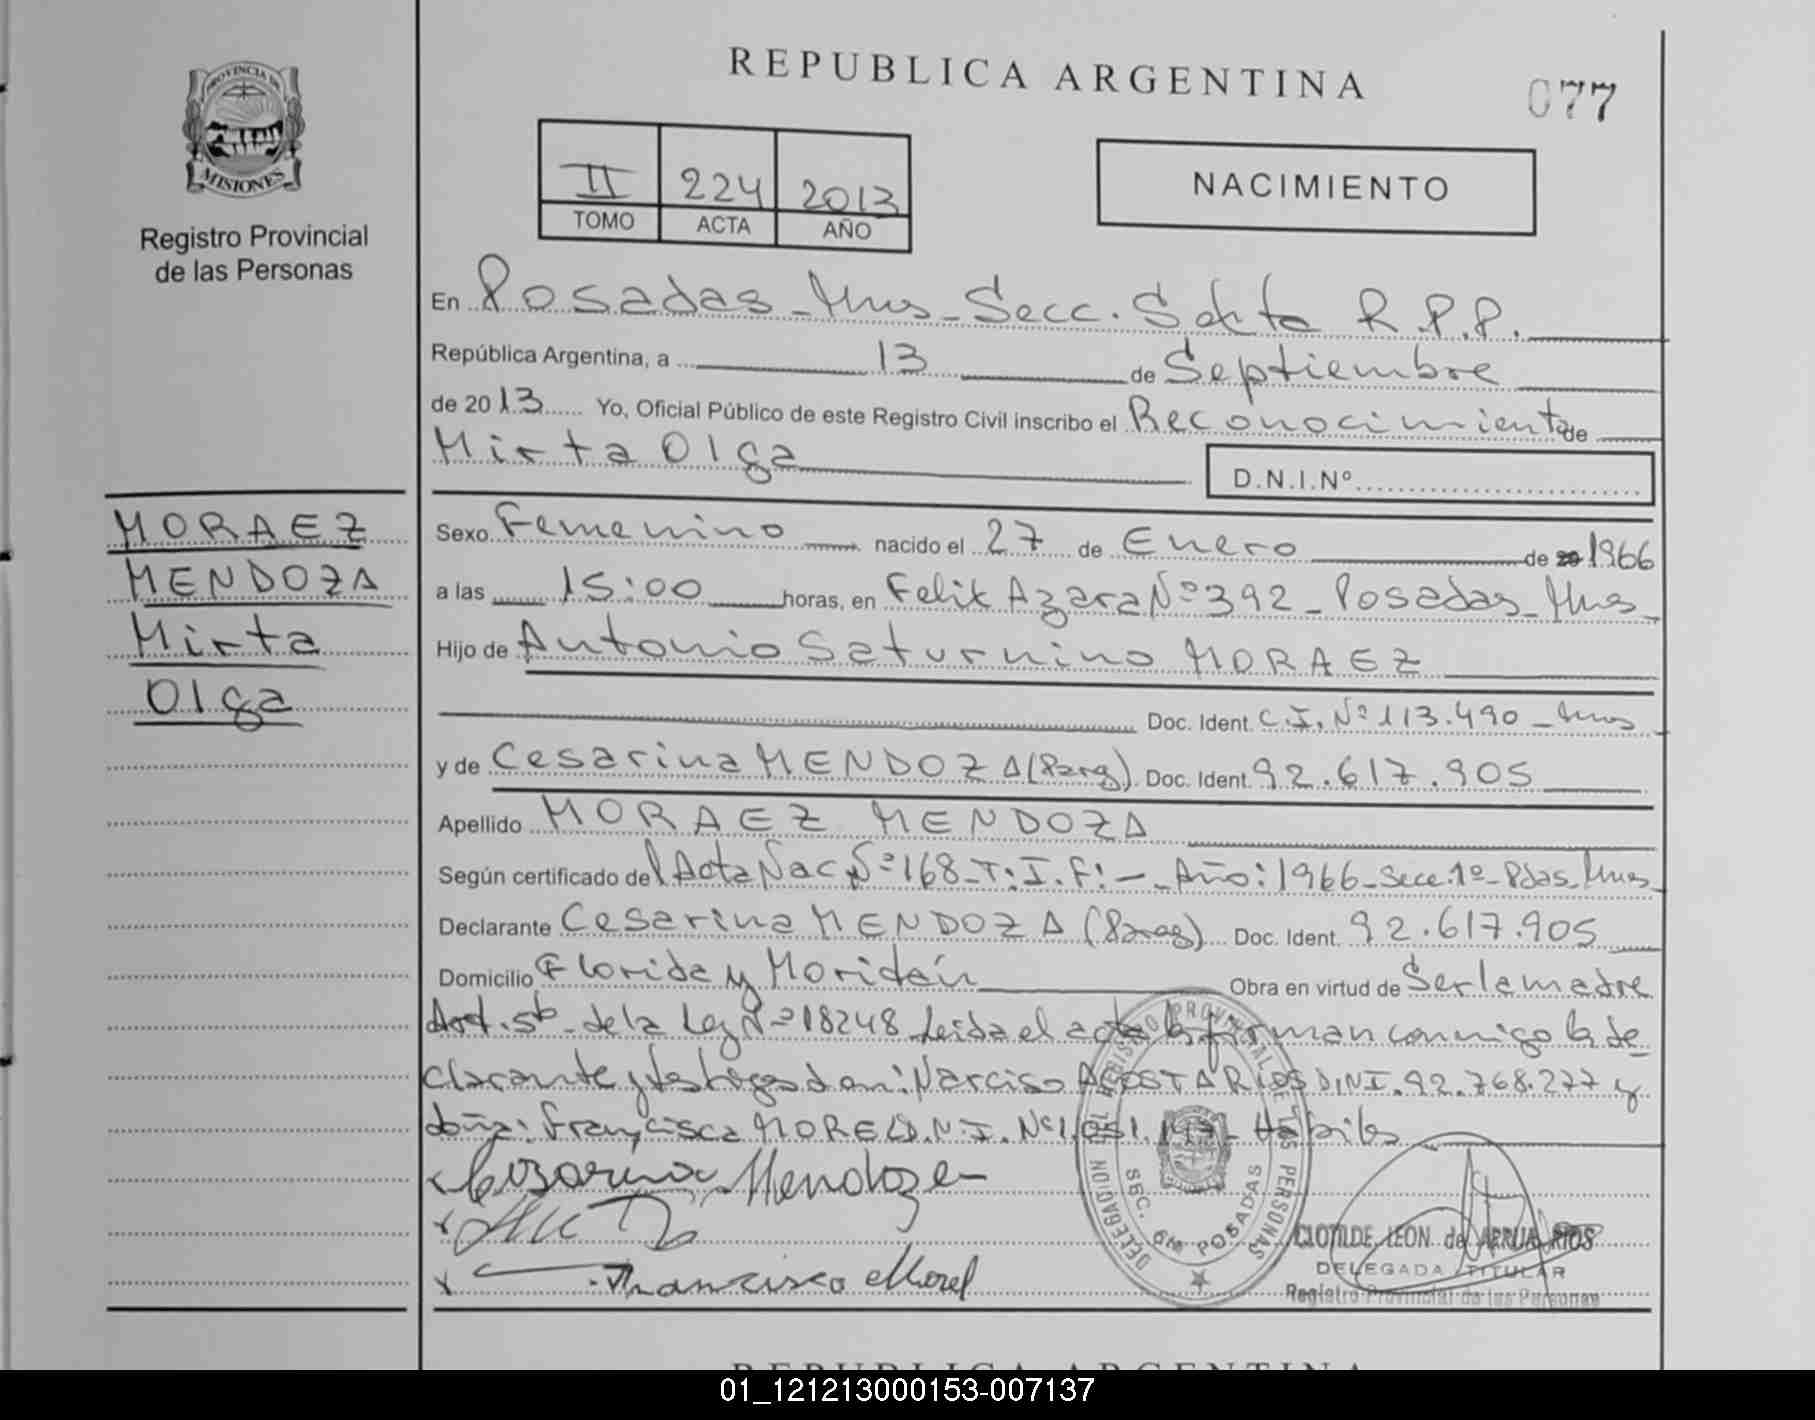 REPUBLICA ARGENTINA
077
PROVINCIA DE
MISIONES
Registro Provincial
de las Personas
II 224 2013
TOMO ACTA AÑO
NACIMIENTO
En Posadas - Mnes - Secc. Sexta R.P.P.
República Argentina, a 13 de Septiembre
de 2013 Yo, Oficial Público de este Registro Civil inscribo el Reconocimiento de
Mirta Olga
D.N.I.Nº
MORAEZ
MENDOZA
Mirta
Olga
Sexo Femenino nacido el 27 de Enero de 20 1966
a las 15:00 horas, en Felix Azara Nº 392 - Posadas - Mnes -
Hijo de Antonio Saturnino MORAEZ
Doc. Ident. C.I. Nº 113.490 - Mnes
y de Cesarina MENDOZA (Parag). Doc. Ident. 92.617.905
Apellido MORAEZ MENDOZA
Según certificado del Acta Nac. Nº 168 - T: I. F: - - Año: 1966 - Secc. 1º - Pdas - Mnes
Declarante Cesarina MENDOZA (Parag) Doc. Ident. 92.617.905
Domicilio Florida y Obra en virtud de Ser la madre
Art. 5b - de la Ley Nº 18248 Leida el acta la firman conmigo la de-
clarante y testigos don: Narciso ACOSTA RIOS D.N.I. 92.768.277 y
doña: Francisca MOREL D.N.I. Nº - Habiles
Cezarina Mendoza
Francisco Morel
DELEGACION DEL REGISTRO PROVINCIAL DE LAS PERSONAS
SEC. 6ta POSADAS
CLOTILDE LEON de ARRUA RIOS
DELEGADA TITULAR
Registro Provincial de las Personas
REPUBLICA ARGENTINA
01_121213000153-007137